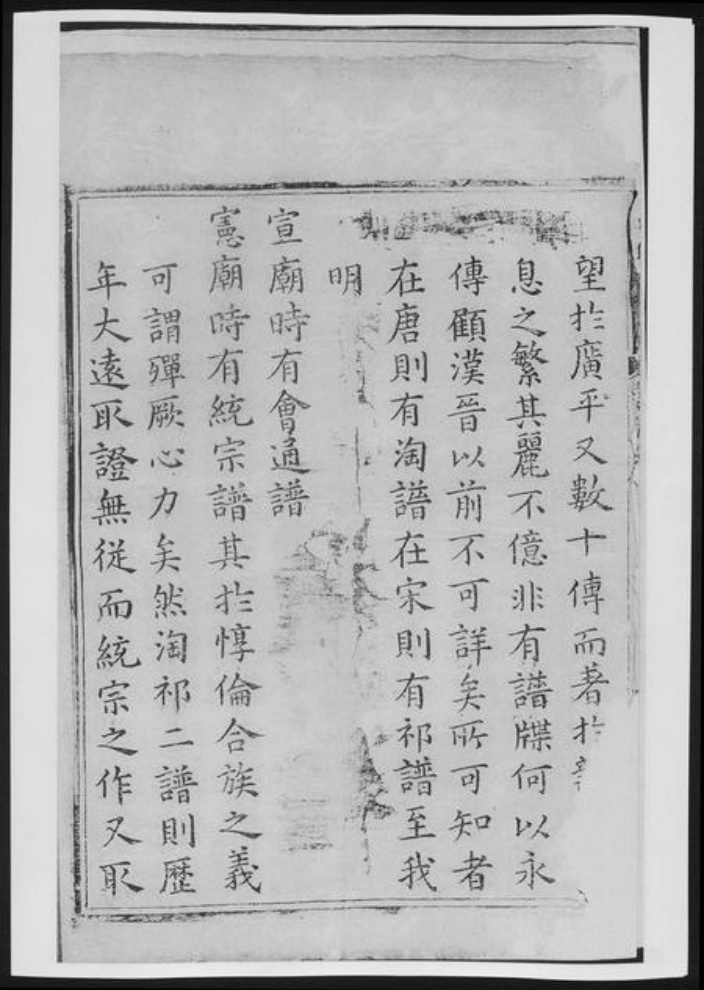 望於廣平又數十傳而著於
息之繁其麗不億非有譜牒何以永
傳顧漢晉以前不可詳矣所可知者
在唐則有淘譜在宋則有祁譜至我
明
宣廟時有會通譜
憲廟時有統宗譜其於惇倫合族之義
可謂殫厥心力矣然淘祁二譜則歷
年大遠取證無從而統宗之作又取